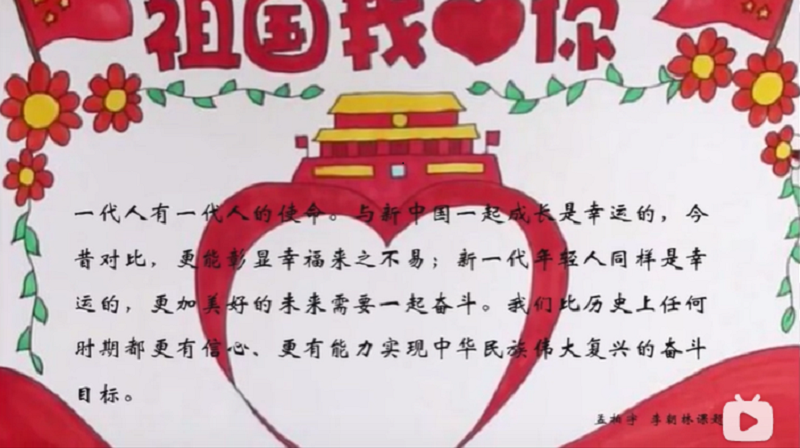 祖国我❤你
一代人有一代人的使命。与新中国一起成长是幸运的，今
昔对比，更能彰显幸福来之不易；新一代年轻人同样是幸
运的，更加美好的未来需要一起奋斗。我们比历史上任何
时期都更有信心、更有能力实现中华民族伟大复兴的奋斗
目标。